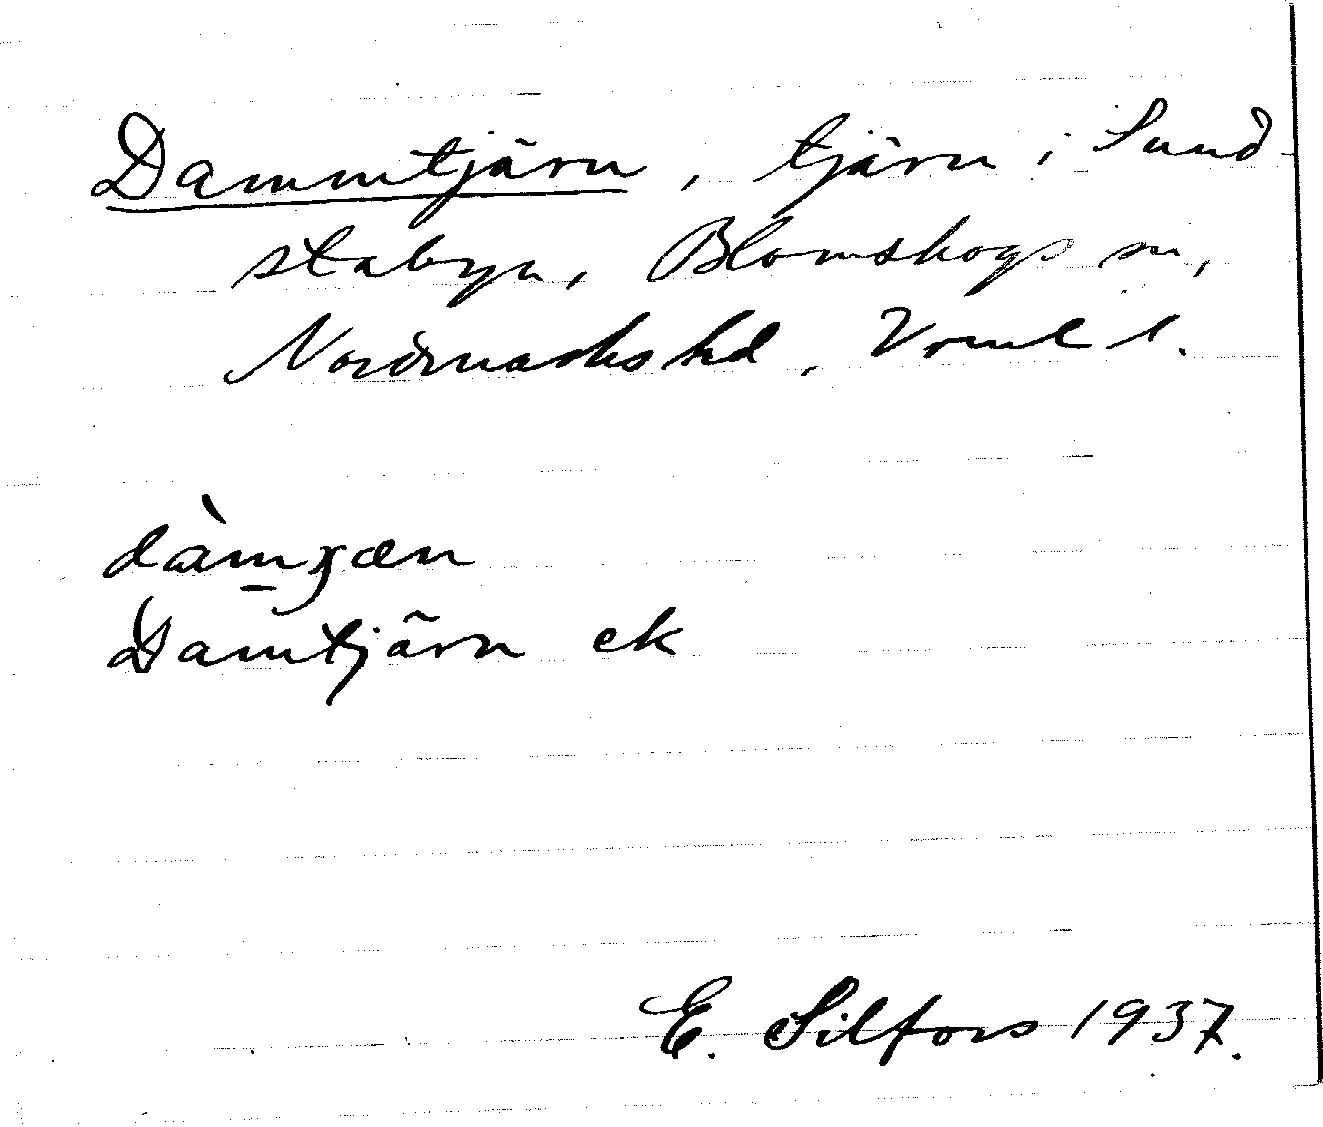 Dammtjärn, tjärn i Sund-
stabyn, Blomskogs sn,
Nordmarks hd, Vrml l.
Damtjärn ek
E. Silfors 1937.